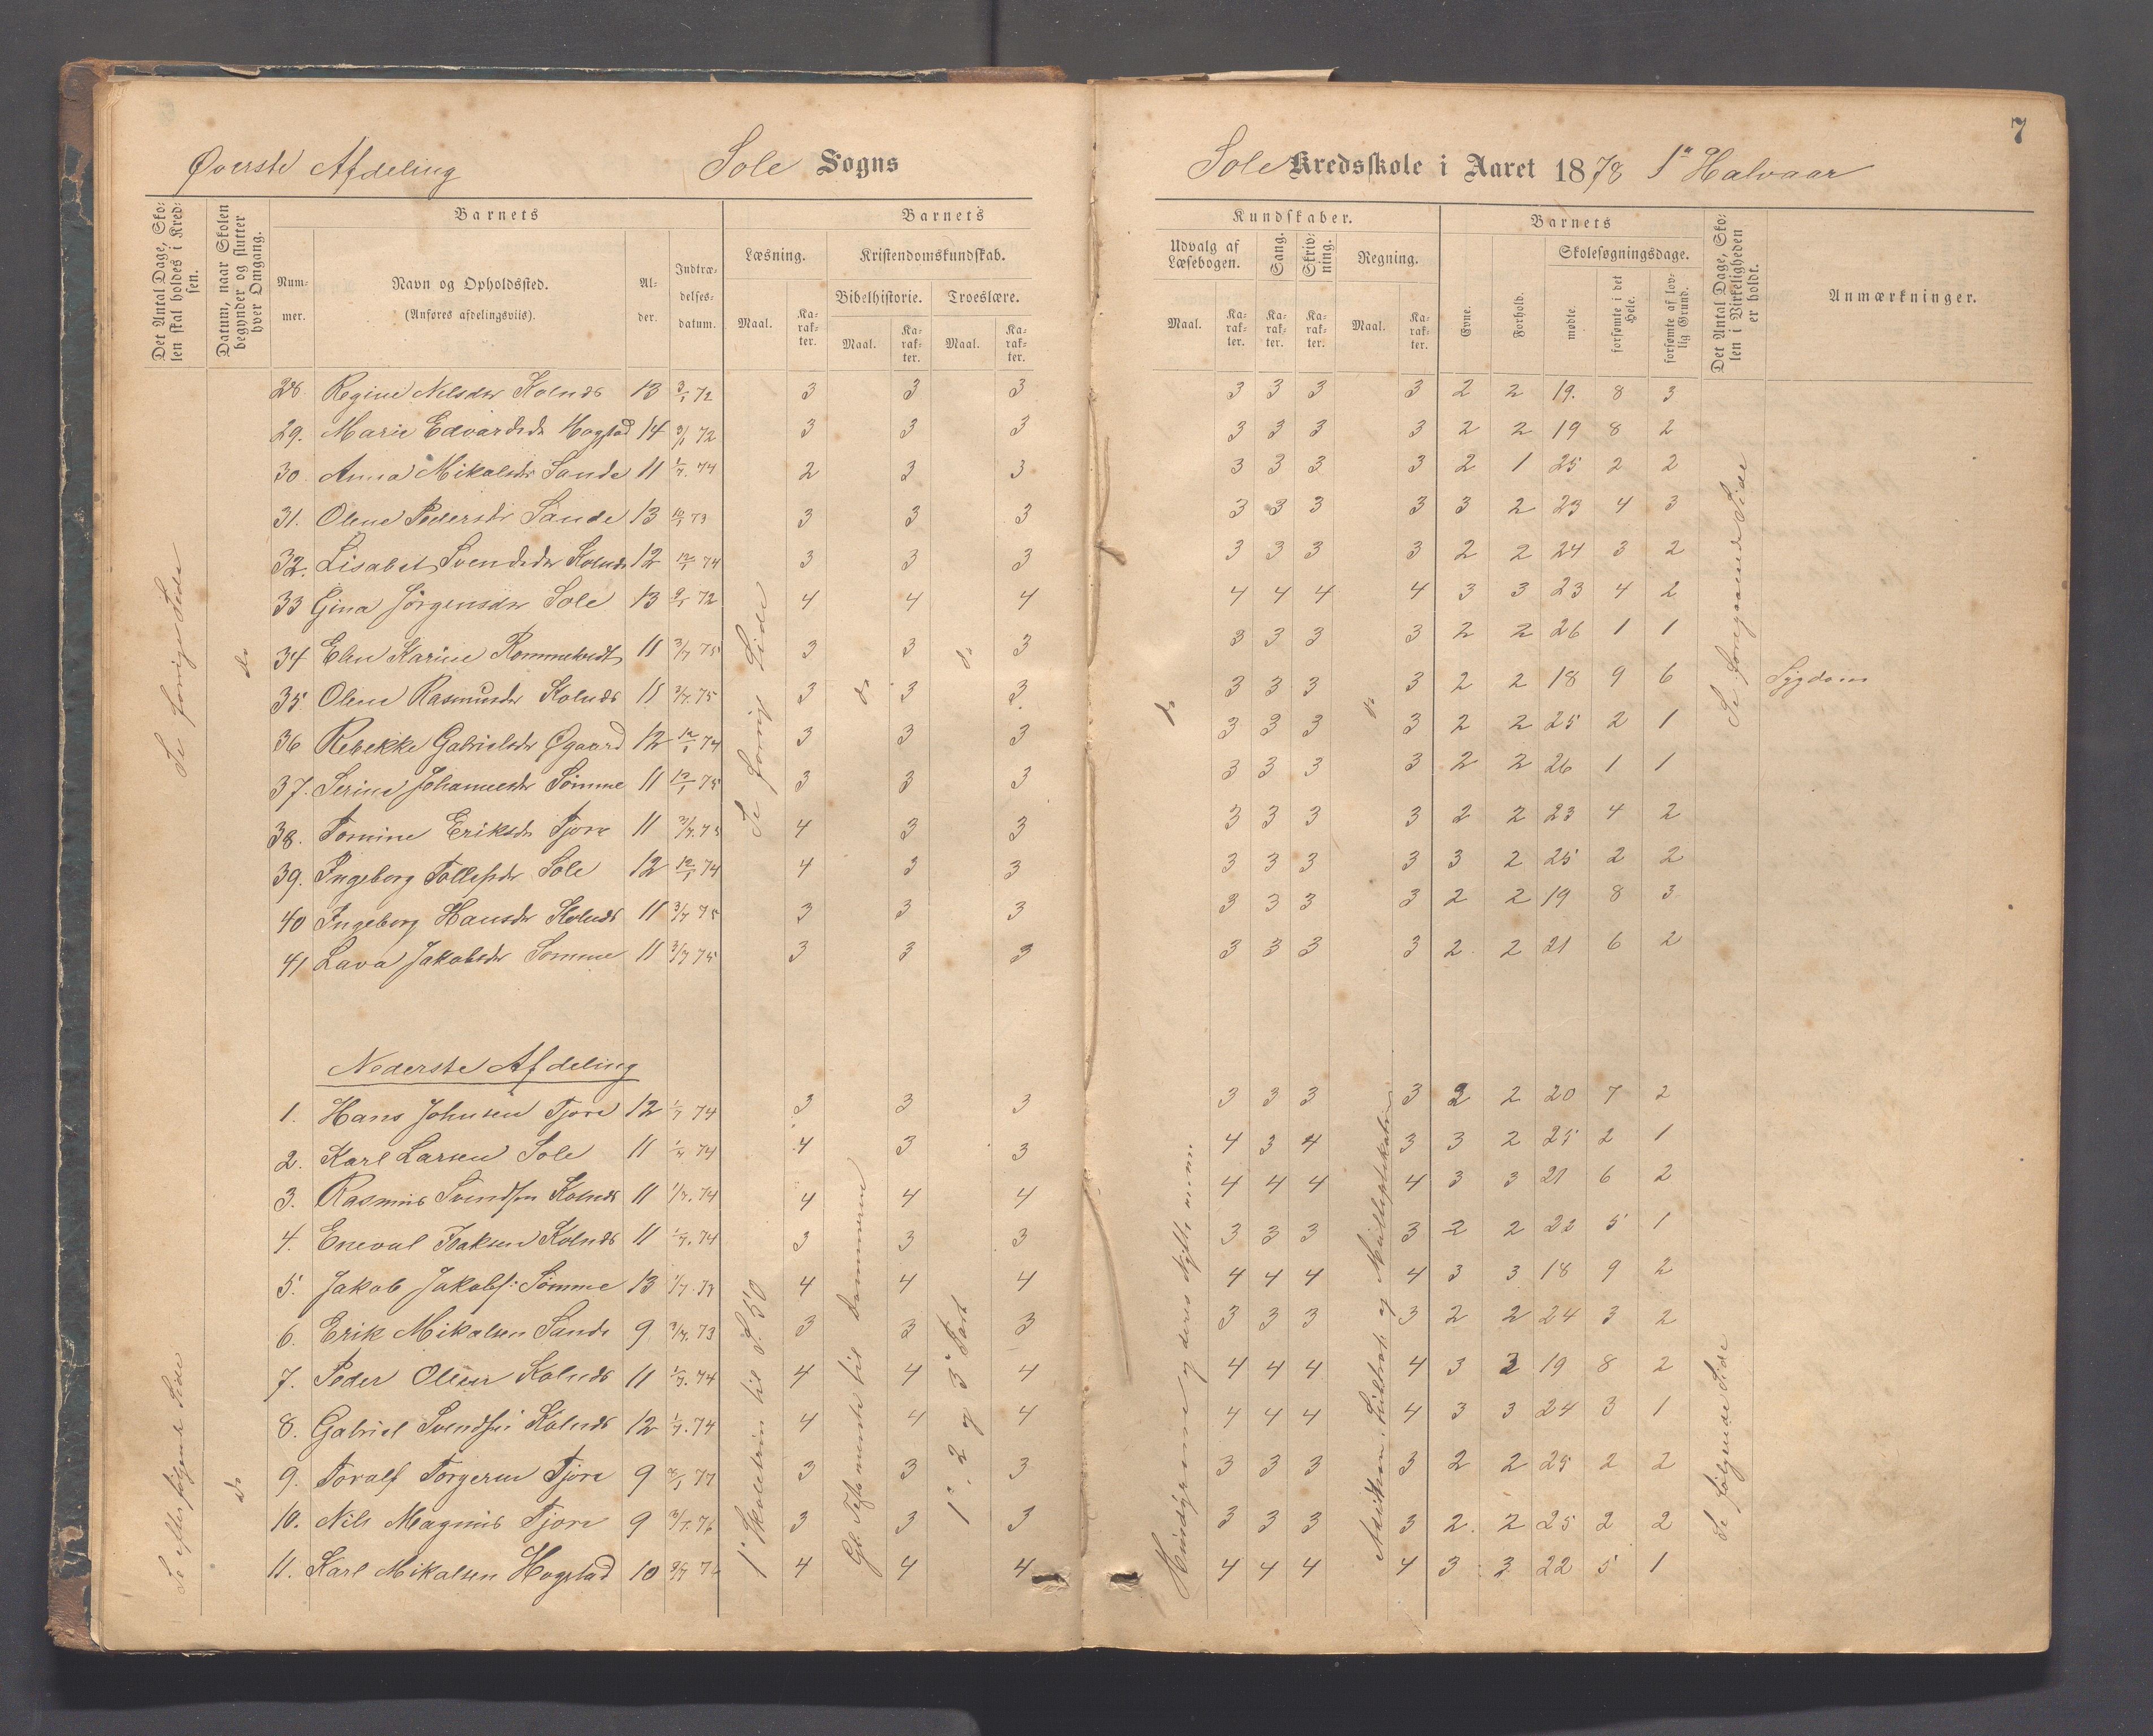 7
Øverste Afdeling Sole Sogns Sole Kredsskole i Aaret 1878 1ste Halvaar
Det Antal Dage, Skolen skal holdes i Kredsen.
Datum, naar Skolen begynder og slutter hver Omgang.
Barnets
Nummer. Navn og Opholdssted. (Anføres afdelingsviis). Alder. Indtrædelsesdatum.
Barnets Kundskaber.
Læsning. Kristendomskundskab. Udvalg af Læsebogen. Sang. Skrivning. Regning.
Bibelhistorie. Troeslære.
Maal. Karakter. Maal. Karakter. Maal. Karakter. Maal. Karakter. Karakter. Karakter. Maal. Karakter.
Barnets
Evne. Forhold. Skolesøgningsdage. mødte. forsømte i det Hele. forsømte af lovlig Grund.
Det Antal Dage, Skolen i Virkeligheden er holdt.
Anmærkninger.
28. Regine Nilsdtr Kolnds 13 3/1 72 3 3 3 3 3 3 3 2 2 19. 8 3
29. Marie Edvardsdtr Hogstad 14 3/1 72 3 3 3 3 3 3 3 2 2 19 8 2
30 Anna Mikalsdtr Sande 11 1/7. 74 2 3 3 3 3 3 3 2 1 25 2 2
31. Olene Pedersdtr Sande 13 10/1 73 3 3 3 3 3 3 3 3 2 23 4 3
32. Lisabet Svendsdtr Kolnds 12 12/1 74 3 3 3 3 3 3 3 2 2 24 3 2
33 Gina Jørgensdtr Sole 13 9/1 72 4 4 4 4 4 4 4 3 3 23 4 2
34 Elen Karine Rommetvedt 11 3/7 75 3 3 3 3 3 3 3 2 2 26 1 1
35 Olene Rasmusdtr Kolnds 11 3/7. 75 3 3 3 3 3 3 3 2 2 18 9 6 Sygdom
36 Rebekke Gabrielsdtr Øgaard 12 12/1 74 3 3 3 3 3 3 3 2 2 25 2 1
37. Serine Johannesdtr Sømme 11 12/1 75 3 3 3 3 3 3 3 2 2 26 1 1
38. Tomine Eriksdtr Tjora 11 3/7. 75 4 3 3 3 3 3 3 2 2 23 4 2
39. Ingeborg Tollefsdtr Sole 12 12/1 74 4 3 3 3 3 3 3 3 2 25 2 2
40 Ingeborg Hansdtr Kolnds 11 3/7 75 3 3 3 3 3 3 3 2 2 19 8 3
41 Lava Jakobsdtr Sømme 11 3/7 75 3 3 3 3 3 3 3 2. 2 21 6 2
Se forrige Side
do
Se forrige Side
do
do
do
do
Se foregaaende Side
Nederste Afdeling
1. Hans Johnsen Tjora 12 1/7 74 3 3 3 3 3 3 3 2 2 20 7 2
2. Karl Larsen Sole 11 1/7 74 4 3 3 4 3 4 3 3 2 25 2 1
3. Rasmus Svendsen Kolnds 11 1/7. 74 4 4 4 4 4 4 4 3 3 21 6 2
4. Eneval Isaksen Kolnds 11 1/7. 74 3 3 3 3 3 3 3 2 2 22 5 1
5. Jakob Jakobs: Sømme 13 1/7. 73 4 4 4 4 4 4 4 3 3 18 9 2
6. Erik Mikalsen Sande 9 3/7. 73 3 3 3 3 3 3 3 2 2 24 3 2
7. Peder Olsen Kolnds 11 1/7. 74 4 4 4 4 4 4 4 3 3 19 8 2
8. Gabriel Svendsen Kolnds 12 1/7. 74 4 4 4 4 4 4 4 3 3 24 3 1
9. Toralf Torgersen Tjora 9 77 3 3 3 3 3 3 3 2 2 25 2 2
10. Nils Magnus Tjora 9 3/7. 76 3 3 3 3 3 3 3 2. 2 25 2 2
11. Karl Mikalsen Hogstad 10 4 4 4 4 4 4 4 3 3 22 5 1
Se efterfølgende Side
do
1ste Skoletrin til S. 50
Gl. Test. til Dommerne
1ste, 2 og 3die Part
Hunddyrene og deres
Addition, Subtrak. og Multiplikation
Se følgende Side